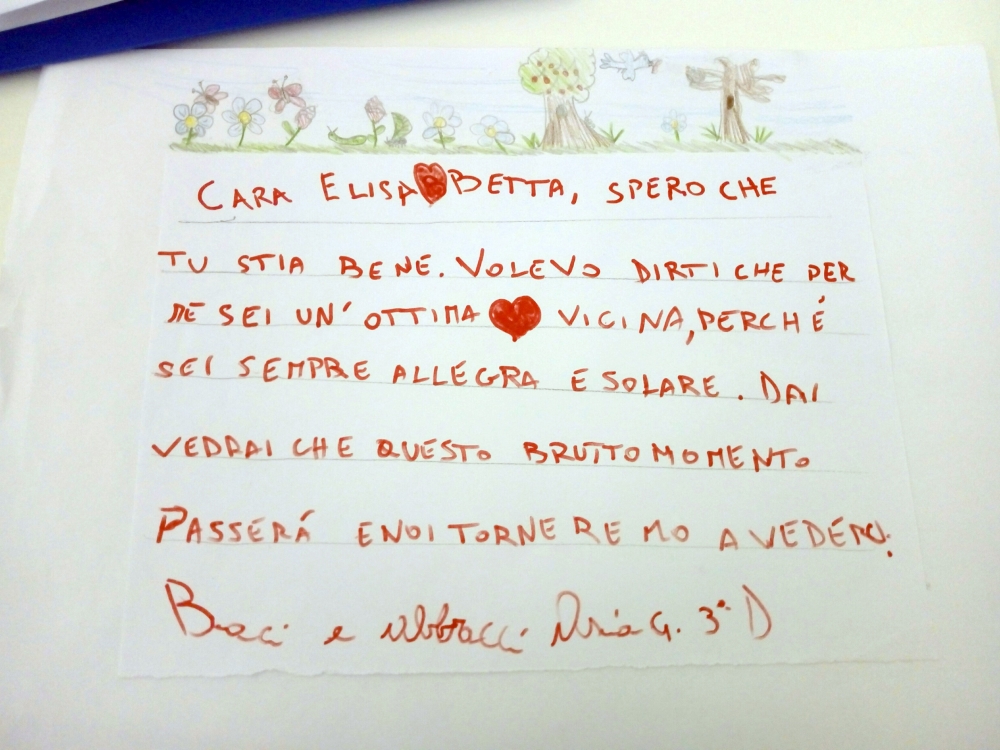 CARA ELISABETTA, SPERO CHE
TU STIA BENE. VOLEVO DIRTI CHE PER
ME SEI UN' OTTIMA VICINA, PERCHÉ
SEI SEMPRE ALLEGRA E SOLARE. DAI
VEDRAI CHE QUESTO BRUTTO MOMENTO
PASSERÁ E NOI TORNEREMO A VEDERCI.
Baci e abbracci G. 3° D